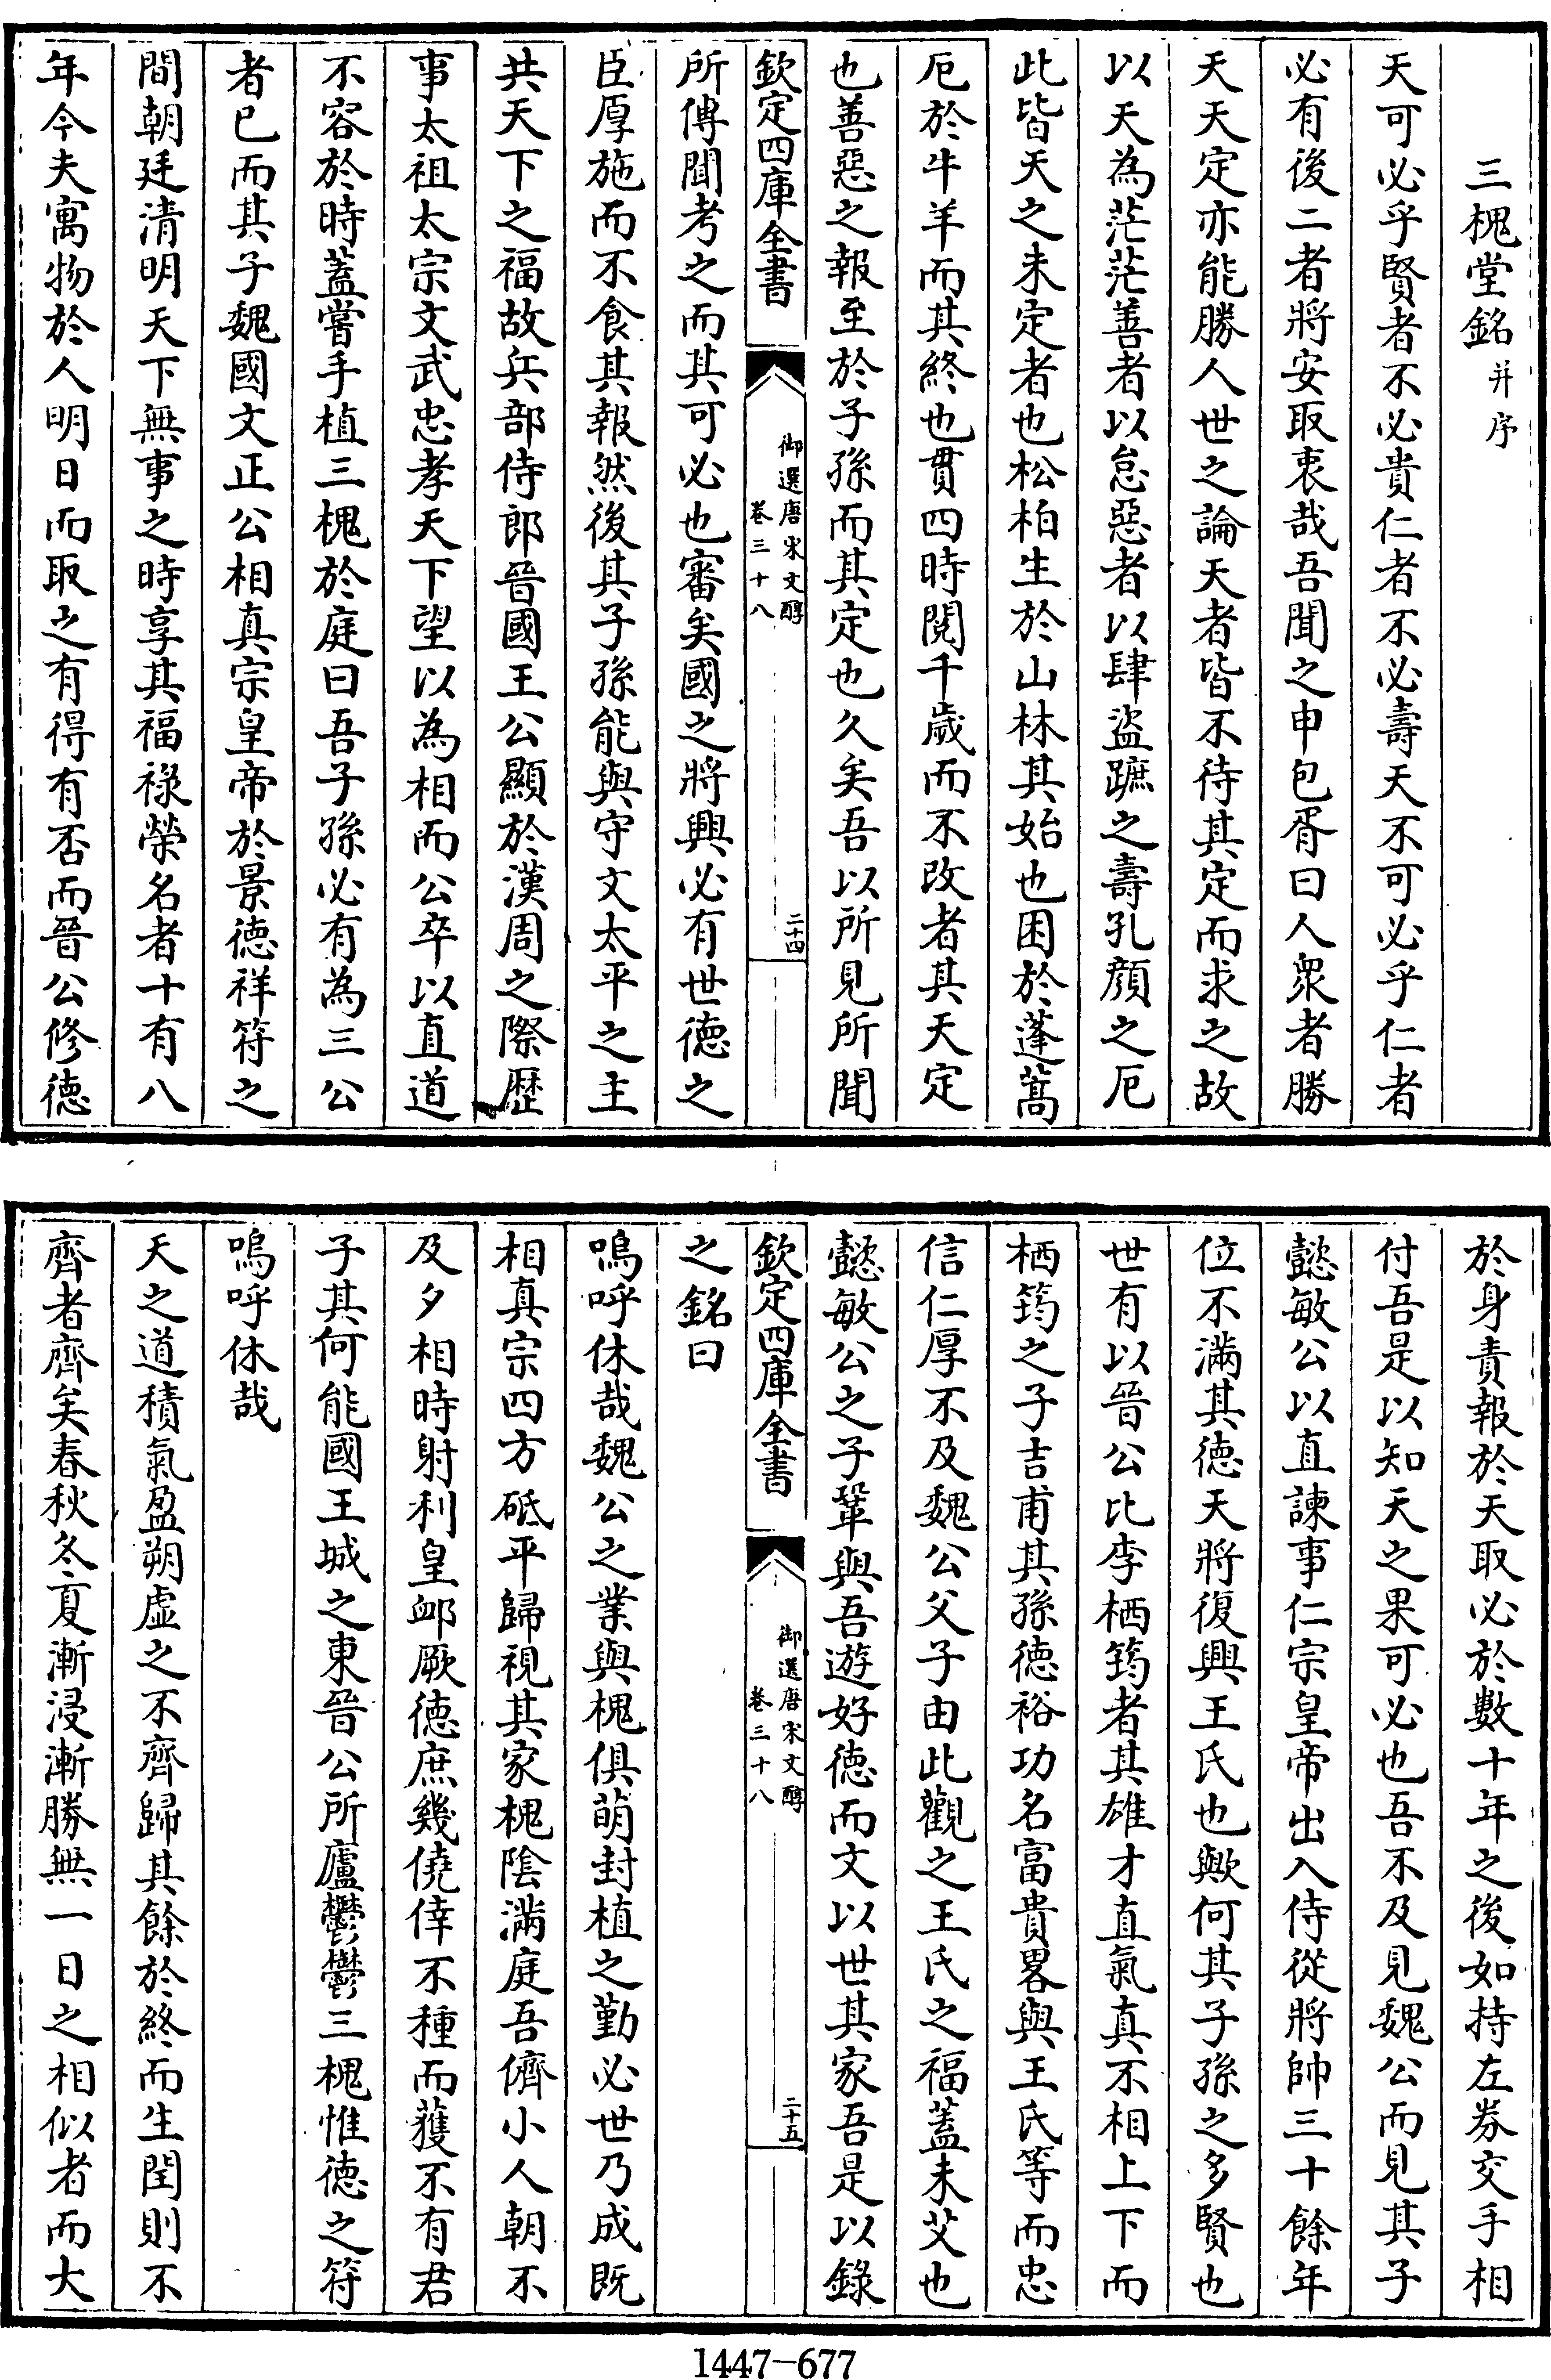 三槐堂銘并序
天可必乎賢者不必貴仁者不必壽天不可必乎仁者
必有後二者將安取衷哉吾聞之申包胥曰人衆者勝
天天定亦能勝人世之論天者皆不待其定而求之故
以天為茫茫善者以怠惡者以肆盜蹠之壽孔顏之厄
此皆天之未定者也松柏生於山林其始也困於蓬蒿
厄於牛羊而其終也貫四時閱千歲而不改者其天定
也善惡之報至於子孫而其定也久矣吾以所見所聞
欽定四庫全書
御選唐宋文醇
卷三十八
二十四
所傳聞考之而其可必也審矣國之將興必有世德之
臣厚施而不食其報然後其子孫能與守文太平之主
共天下之福故兵部侍郎晉國王公顯於漢周之際歷
事太祖太宗文武忠孝天下望以為相而公卒以直道
不容於時蓋嘗手植三槐於庭曰吾子孫必有為三公
者已而其子魏國文正公相真宗皇帝於景德祥符之
間朝廷清明天下無事之時享其福祿榮名者十有八
年今夫寓物於人明日而取之有得有否而晉公修德
於身責報於天取必於數十年之後如持左券交手相
付吾是以知天之果可必也吾不及見魏公而見其子
懿敏公以直諫事仁宗皇帝出入侍從將帥三十餘年
位不滿其德天將復興王氏也歟何其子孫之多賢也
世有以晉公比李栖筠者其雄才直氣真不相上下而
栖筠之子吉甫其孫德裕功名富貴畧與王氏等而忠
信仁厚不及魏公父子由此觀之王氏之福蓋未艾也
懿敏公之子鞏與吾遊好德而文以世其家吾是以錄
欽定四庫全書
御選唐宋文醇
卷三十八
二十五
之銘曰
嗚呼休哉魏公之業與槐俱萌封植之勤必世乃成既
相真宗四方砥平歸視其家槐陰滿庭吾儕小人朝不
及夕相時射利皇卹厥德庶幾僥倖不種而獲不有君
子其何能國王城之東晉公所廬鬱鬱三槐惟德之符
嗚呼休哉
天之道積氣盈朔虛之不齊歸其餘於終而生閏則不
齊者齊矣春秋冬夏漸浸漸勝無一日之相似者而大
1447-677